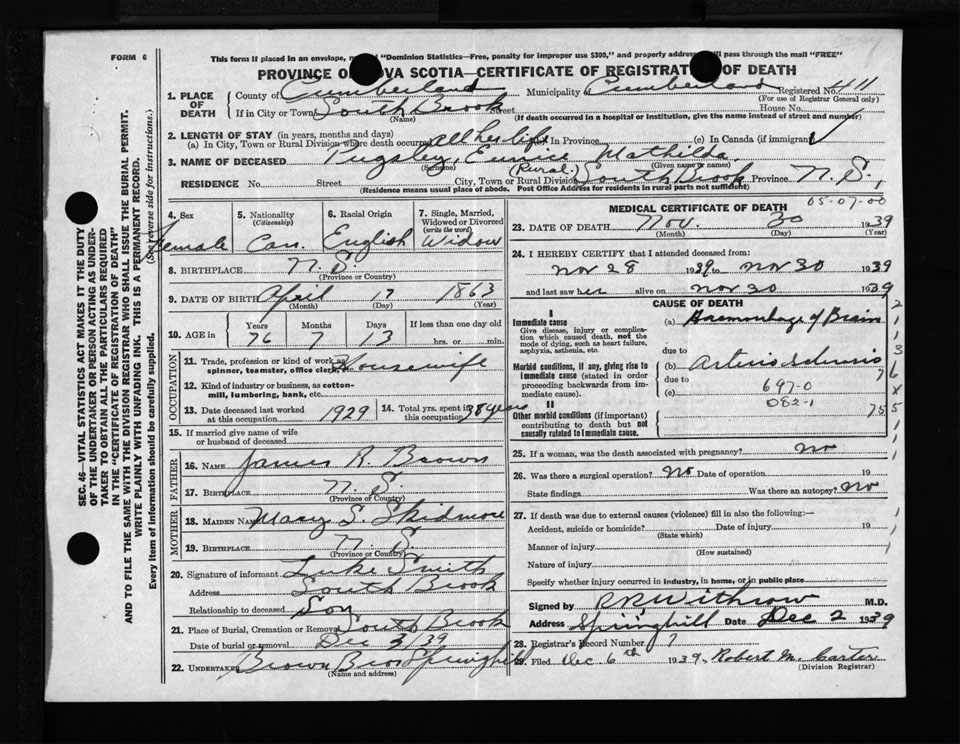 FORM 6
This form if placed in an envelope, "Dominion Statistics—Free, penalty for improper use $300," and properly pass through the mail "FREE"
PROVINCE OVA SCOTIA—CERTIFICATE OF REGISTRAT OF DEATH
1. PLACE OF DEATH
County of Cumberland Municipality Cumberland Registered No. 411
(For use of Registrar General only)
If in City or Town South Brook Street House No.
(Name) (If death occurred in a hospital or institution, give the name instead of street and number)
2. LENGTH OF STAY (in years, months and days)
(a) In City, Town or Rural Division where death occurred all her life In Province (c) In Canada (if immigrant) ✓
3. NAME OF DECEASED Pugsley, Eunice Mathilda
(Surname) (Given name or names)
RESIDENCE No. Street City, Town or Rural Division (Rural) South Brook Province N.S.,
(Residence means usual place of abode. Post Office Address for residents in rural parts not sufficient)
05-07-00
4. Sex Female
5. Nationality (Citizenship) Can.
6. Racial Origin English
7. Single, Married, Widowed or Divorced (write the word) Widow
8. BIRTHPLACE N.S.
(Province or Country)
9. DATE OF BIRTH April 17 1863
(Month) (Day) (Year)
10. AGE in Years 76 Months 7 Days 13 If less than one day old hrs. or min.
OCCUPATION
11. Trade, profession or kind of work as spinner, teamster, office clerk, Housewife
12. Kind of industry or business, as cotton-mill, lumbering, bank, etc.
13. Date deceased last worked at this occupation 1929
14. Total yrs. spent in this occupation 38 years
15. If married give name of wife or husband of deceased
FATHER
16. NAME James R. Brown
17. BIRTHPLACE N.S.
(Province of Country)
MOTHER
18. MAIDEN NAME Mary S. Skidmore
19. BIRTHPLACE N.S.
(Province or Country)
20. Signature of informant Luke Smith
Address South Brook
Relationship to deceased Son
21. Place of Burial, Cremation or Removal South Brook
Date of burial or removal Dec 3/39
22. UNDERTAKER Brown Bros Springhill
(Name and address)
MEDICAL CERTIFICATE OF DEATH
23. DATE OF DEATH Nov. 30 1939
(Month) (Day) (Year)
24. I HEREBY CERTIFY that I attended deceased from:
Nov 28 1939 to Nov 30 1939
and last saw her alive on Nov 30 1939
CAUSE OF DEATH
I
Immediate cause
Give disease, injury or complication which caused death, not the mode of dying, such as heart failure, asphyxia, asthenia, etc.
(a) Haemorrhage of Brain
due to
Morbid conditions, if any, giving rise to immediate cause (stated in order proceeding backwards from immediate cause)
(b) Arterio Sclerosis
due to
(c) 697-0
082-1
II
Other morbid conditions (if important) contributing to death but not causally related to immediate cause.
25. If a woman, was the death associated with pregnancy? no
26. Was there a surgical operation? No Date of operation 19
State findings Was there an autopsy? No
27. If death was due to external causes (violence) fill in also the following:—
Accident, suicide or homicide? Date of injury 19
(State which)
Manner of injury
(How sustained)
Nature of injury
Specify whether injury occurred in industry, in home, or in public place
Signed by R R Withrow M.D.
Address Springhill Date Dec 2 1939
28. Registrar's Record Number 7
29. Filed Dec. 6th 1939. Robert M. Carter
(Division Registrar)
SEC. 46—VITAL STATISTICS ACT MAKES IT THE DUTY
OF THE UNDERTAKER OR PERSON ACTING AS UNDER-
TAKER TO OBTAIN ALL THE PARTICULARS REQUIRED
IN THE "CERTIFICATE OF REGISTRATION OF DEATH"
AND TO FILE THE SAME WITH THE DIVISION REGISTRAR WHO SHALL ISSUE THE BURIAL PERMIT.
WRITE PLAINLY WITH UNFADING INK. THIS IS A PERMANENT RECORD.
Every item of information should be carefully supplied. (See reverse side for instructions.)